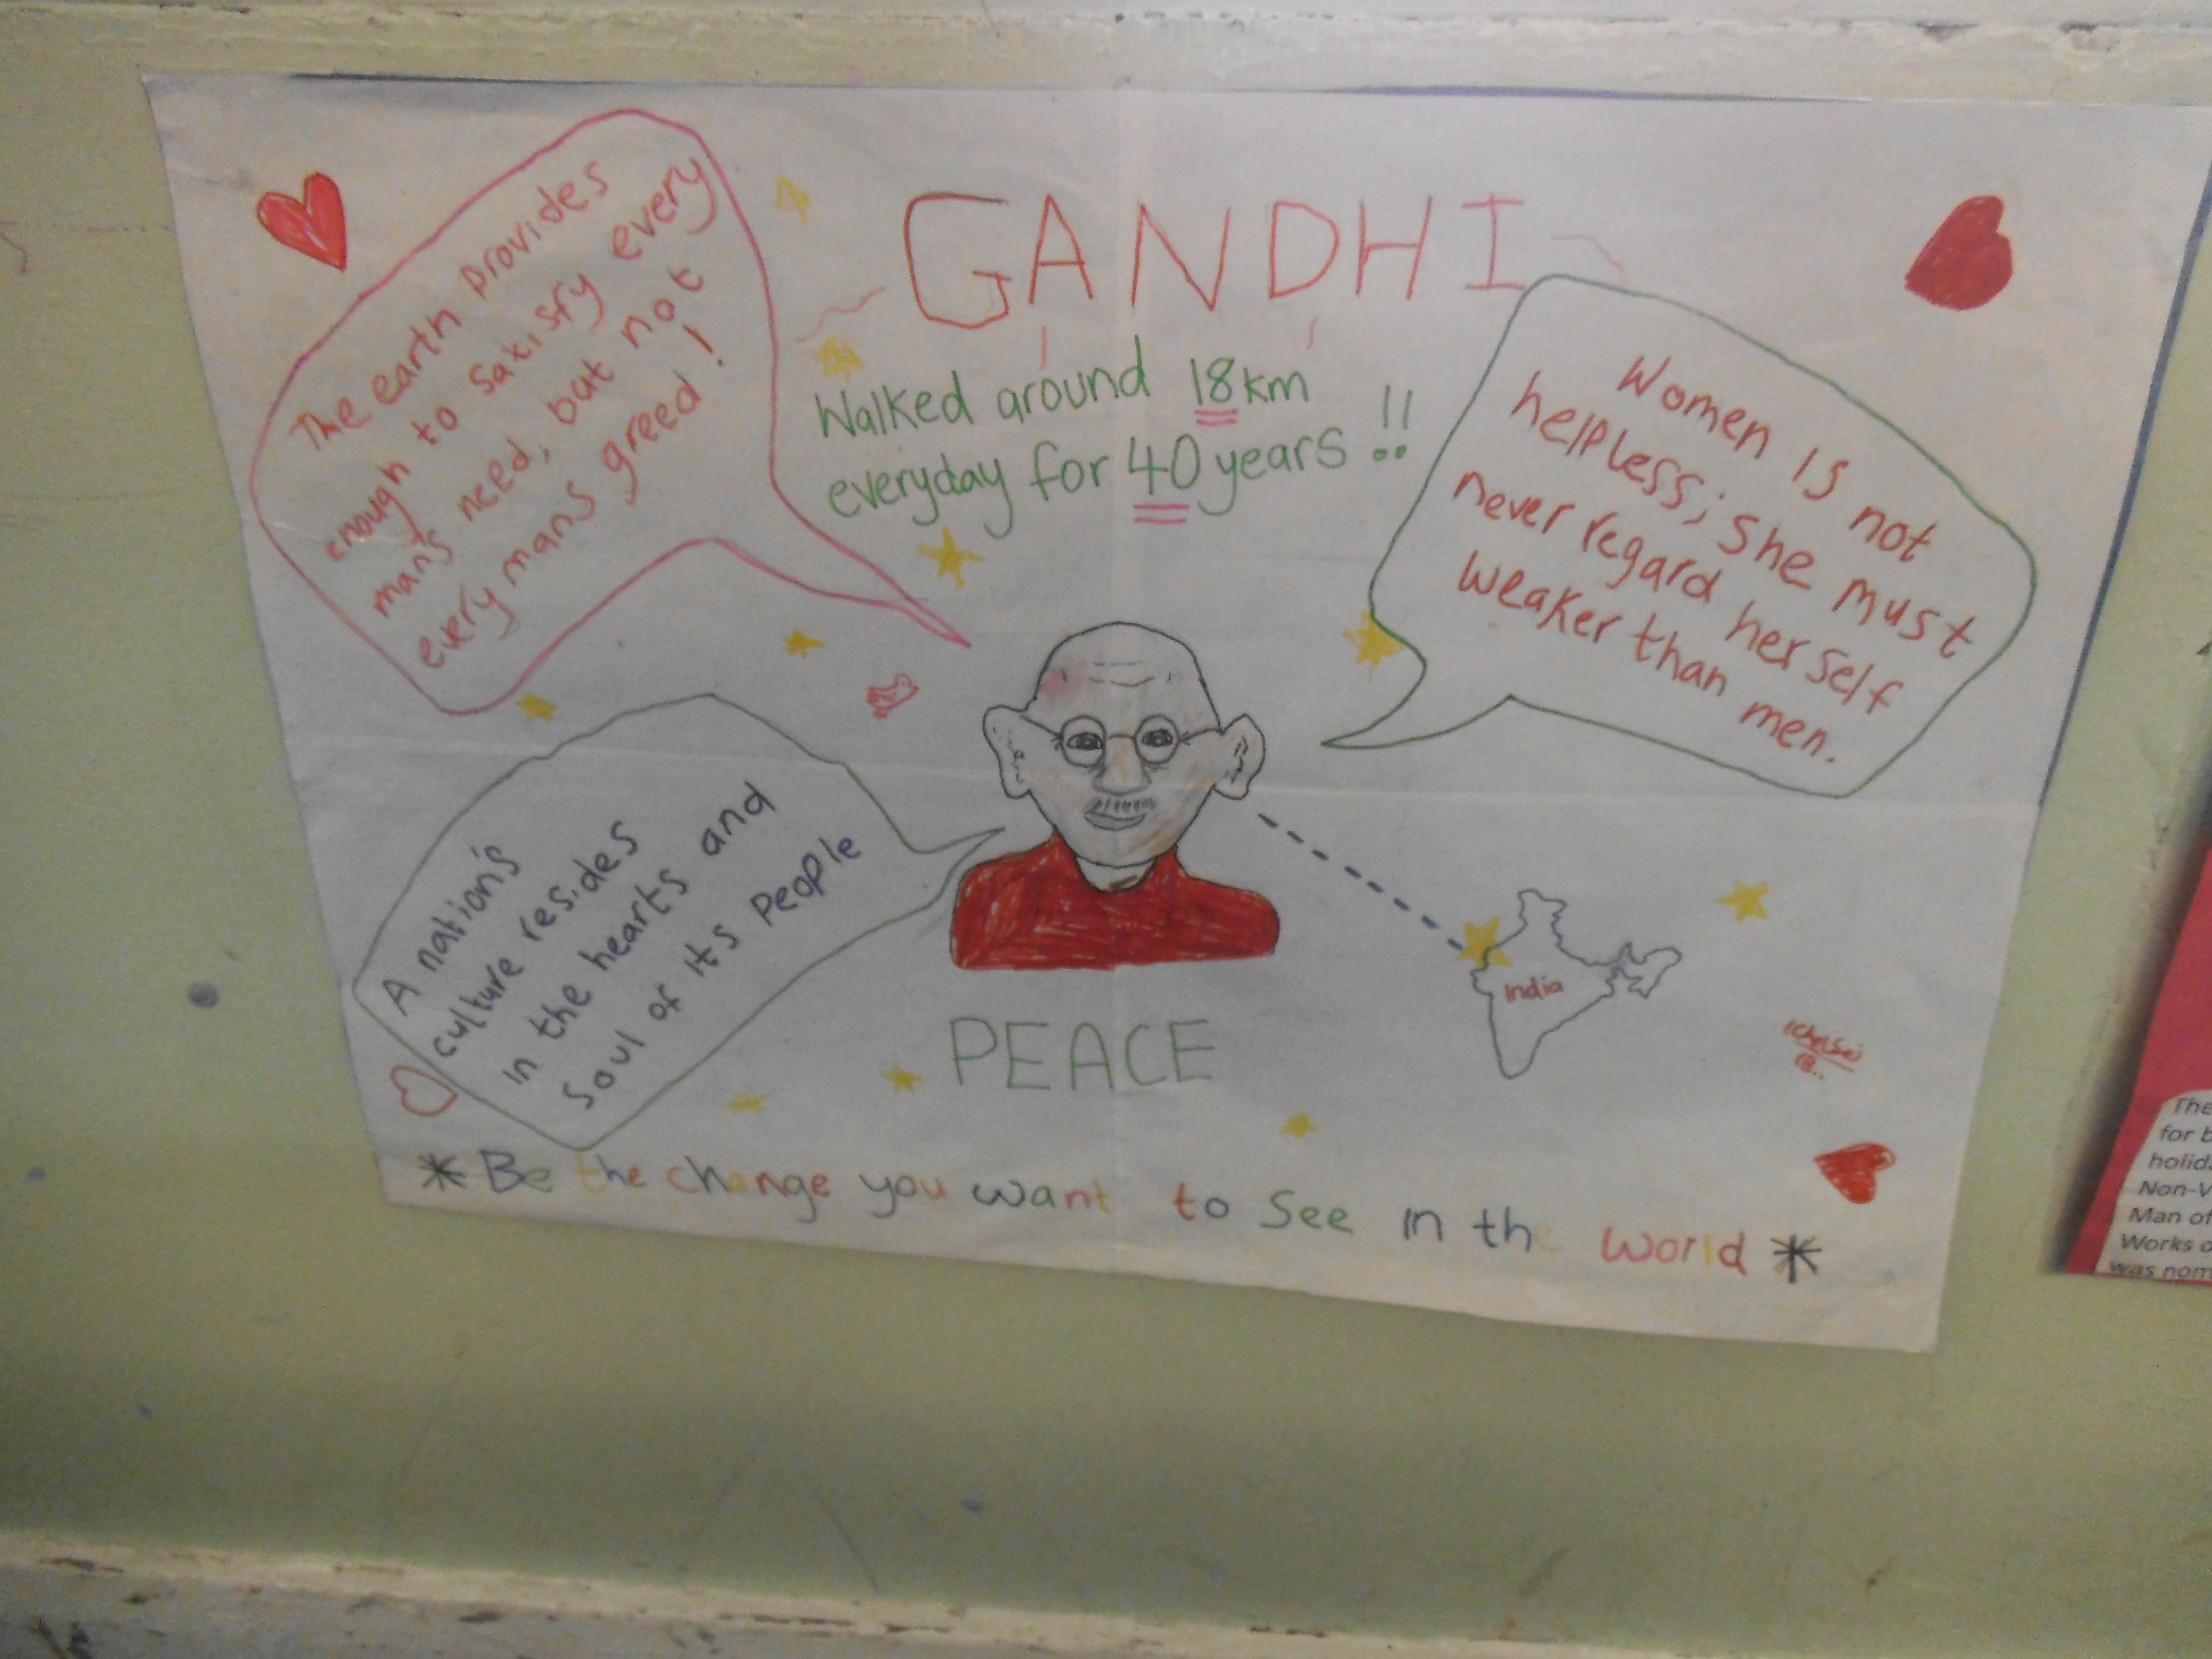 GANDHI
Walked around 18km
everyday for 40 years !!
The earth provides
enough to satisfy every
man's need, but not
every mans greed!
Women is not
helpless; she must
never regard herself
weaker than men.
A nation's
culture resides
in the hearts and
soul of its people
India
PEACE
* Be the change you want to see in the world *
The
for b
holid
Non-V
Man of
Works o
was nom